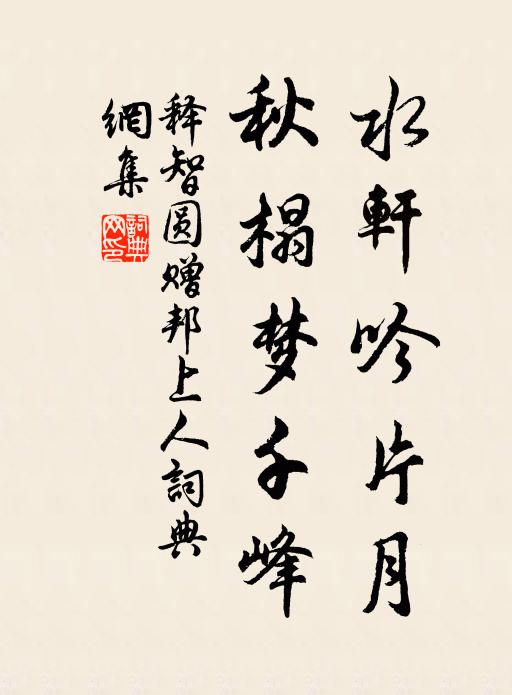 水軒吟片月
秋榻梦千峰
释智圆赠邦上人詞典
網集
詞典
网印